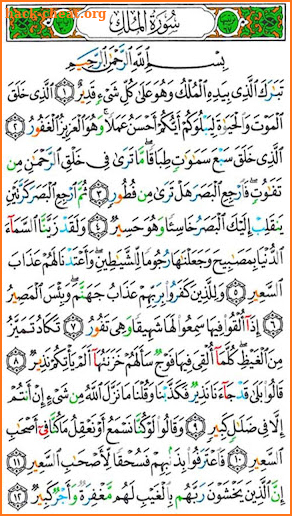 سُورَةُ المُلْكِ
بِسْمِ اللَّهِ الرَّحْمَٰنِ الرَّحِيمِ
تَبَارَكَ الَّذِي بِيَدِهِ الْمُلْكُ وَهُوَ عَلَىٰ كُلِّ شَيْءٍ قَدِيرٌ ١ الَّذِي خَلَقَ
الْمَوْتَ وَالْحَيَوٰةَ لِيَبْلُوَكُمْ أَيُّكُمْ أَحْسَنُ عَمَلًا وَهُوَ الْعَزِيزُ الْغَفُورُ ٢
الَّذِي خَلَقَ سَبْعَ سَمَٰوَٰتٍ طِبَاقًا مَّا تَرَىٰ فِي خَلْقِ الرَّحْمَٰنِ مِن
تَفَٰوُتٍ فَارْجِعِ الْبَصَرَ هَلْ تَرَىٰ مِن فُطُورٍ ٣ ثُمَّ ارْجِعِ الْبَصَرَ كَرَّتَيْنِ
يَنقَلِبْ إِلَيْكَ الْبَصَرُ خَاسِئًا وَهُوَ حَسِيرٌ ٤ وَلَقَدْ زَيَّنَّا السَّمَآءَ
الدُّنْيَا بِمَصَٰبِيحَ وَجَعَلْنَٰهَا رُجُومًا لِّلشَّيَٰطِينِ وَأَعْتَدْنَا لَهُمْ عَذَابَ
السَّعِيرِ ٥ وَلِلَّذِينَ كَفَرُوا بِرَبِّهِمْ عَذَابُ جَهَنَّمَ وَبِئْسَ الْمَصِيرُ
٦ إِذَآ أُلْقُوا فِيهَا سَمِعُوا لَهَا شَهِيقًا وَهِيَ تَفُورُ ٧ تَكَادُ تَمَيَّزُ
مِنَ الْغَيْظِ كُلَّمَآ أُلْقِيَ فِيهَا فَوْجٌ سَأَلَهُمْ خَزَنَتُهَآ أَلَمْ يَأْتِكُمْ نَذِيرٌ ٨
قَالُوا بَلَىٰ قَدْ جَآءَنَا نَذِيرٌ فَكَذَّبْنَا وَقُلْنَا مَا نَزَّلَ اللَّهُ مِن شَيْءٍ إِنْ أَنتُمْ
إِلَّا فِي ضَلَٰلٍ كَبِيرٍ ٩ وَقَالُوا لَوْ كُنَّا نَسْمَعُ أَوْ نَعْقِلُ مَا كُنَّا فِيٓ أَصْحَٰبِ
السَّعِيرِ ١٠ فَاعْتَرَفُوا بِذَنبِهِمْ فَسُحْقًا لِّأَصْحَٰبِ السَّعِيرِ ١١
إِنَّ الَّذِينَ يَخْشَوْنَ رَبَّهُم بِالْغَيْبِ لَهُم مَّغْفِرَةٌ وَأَجْرٌ كَبِيرٌ ١٢